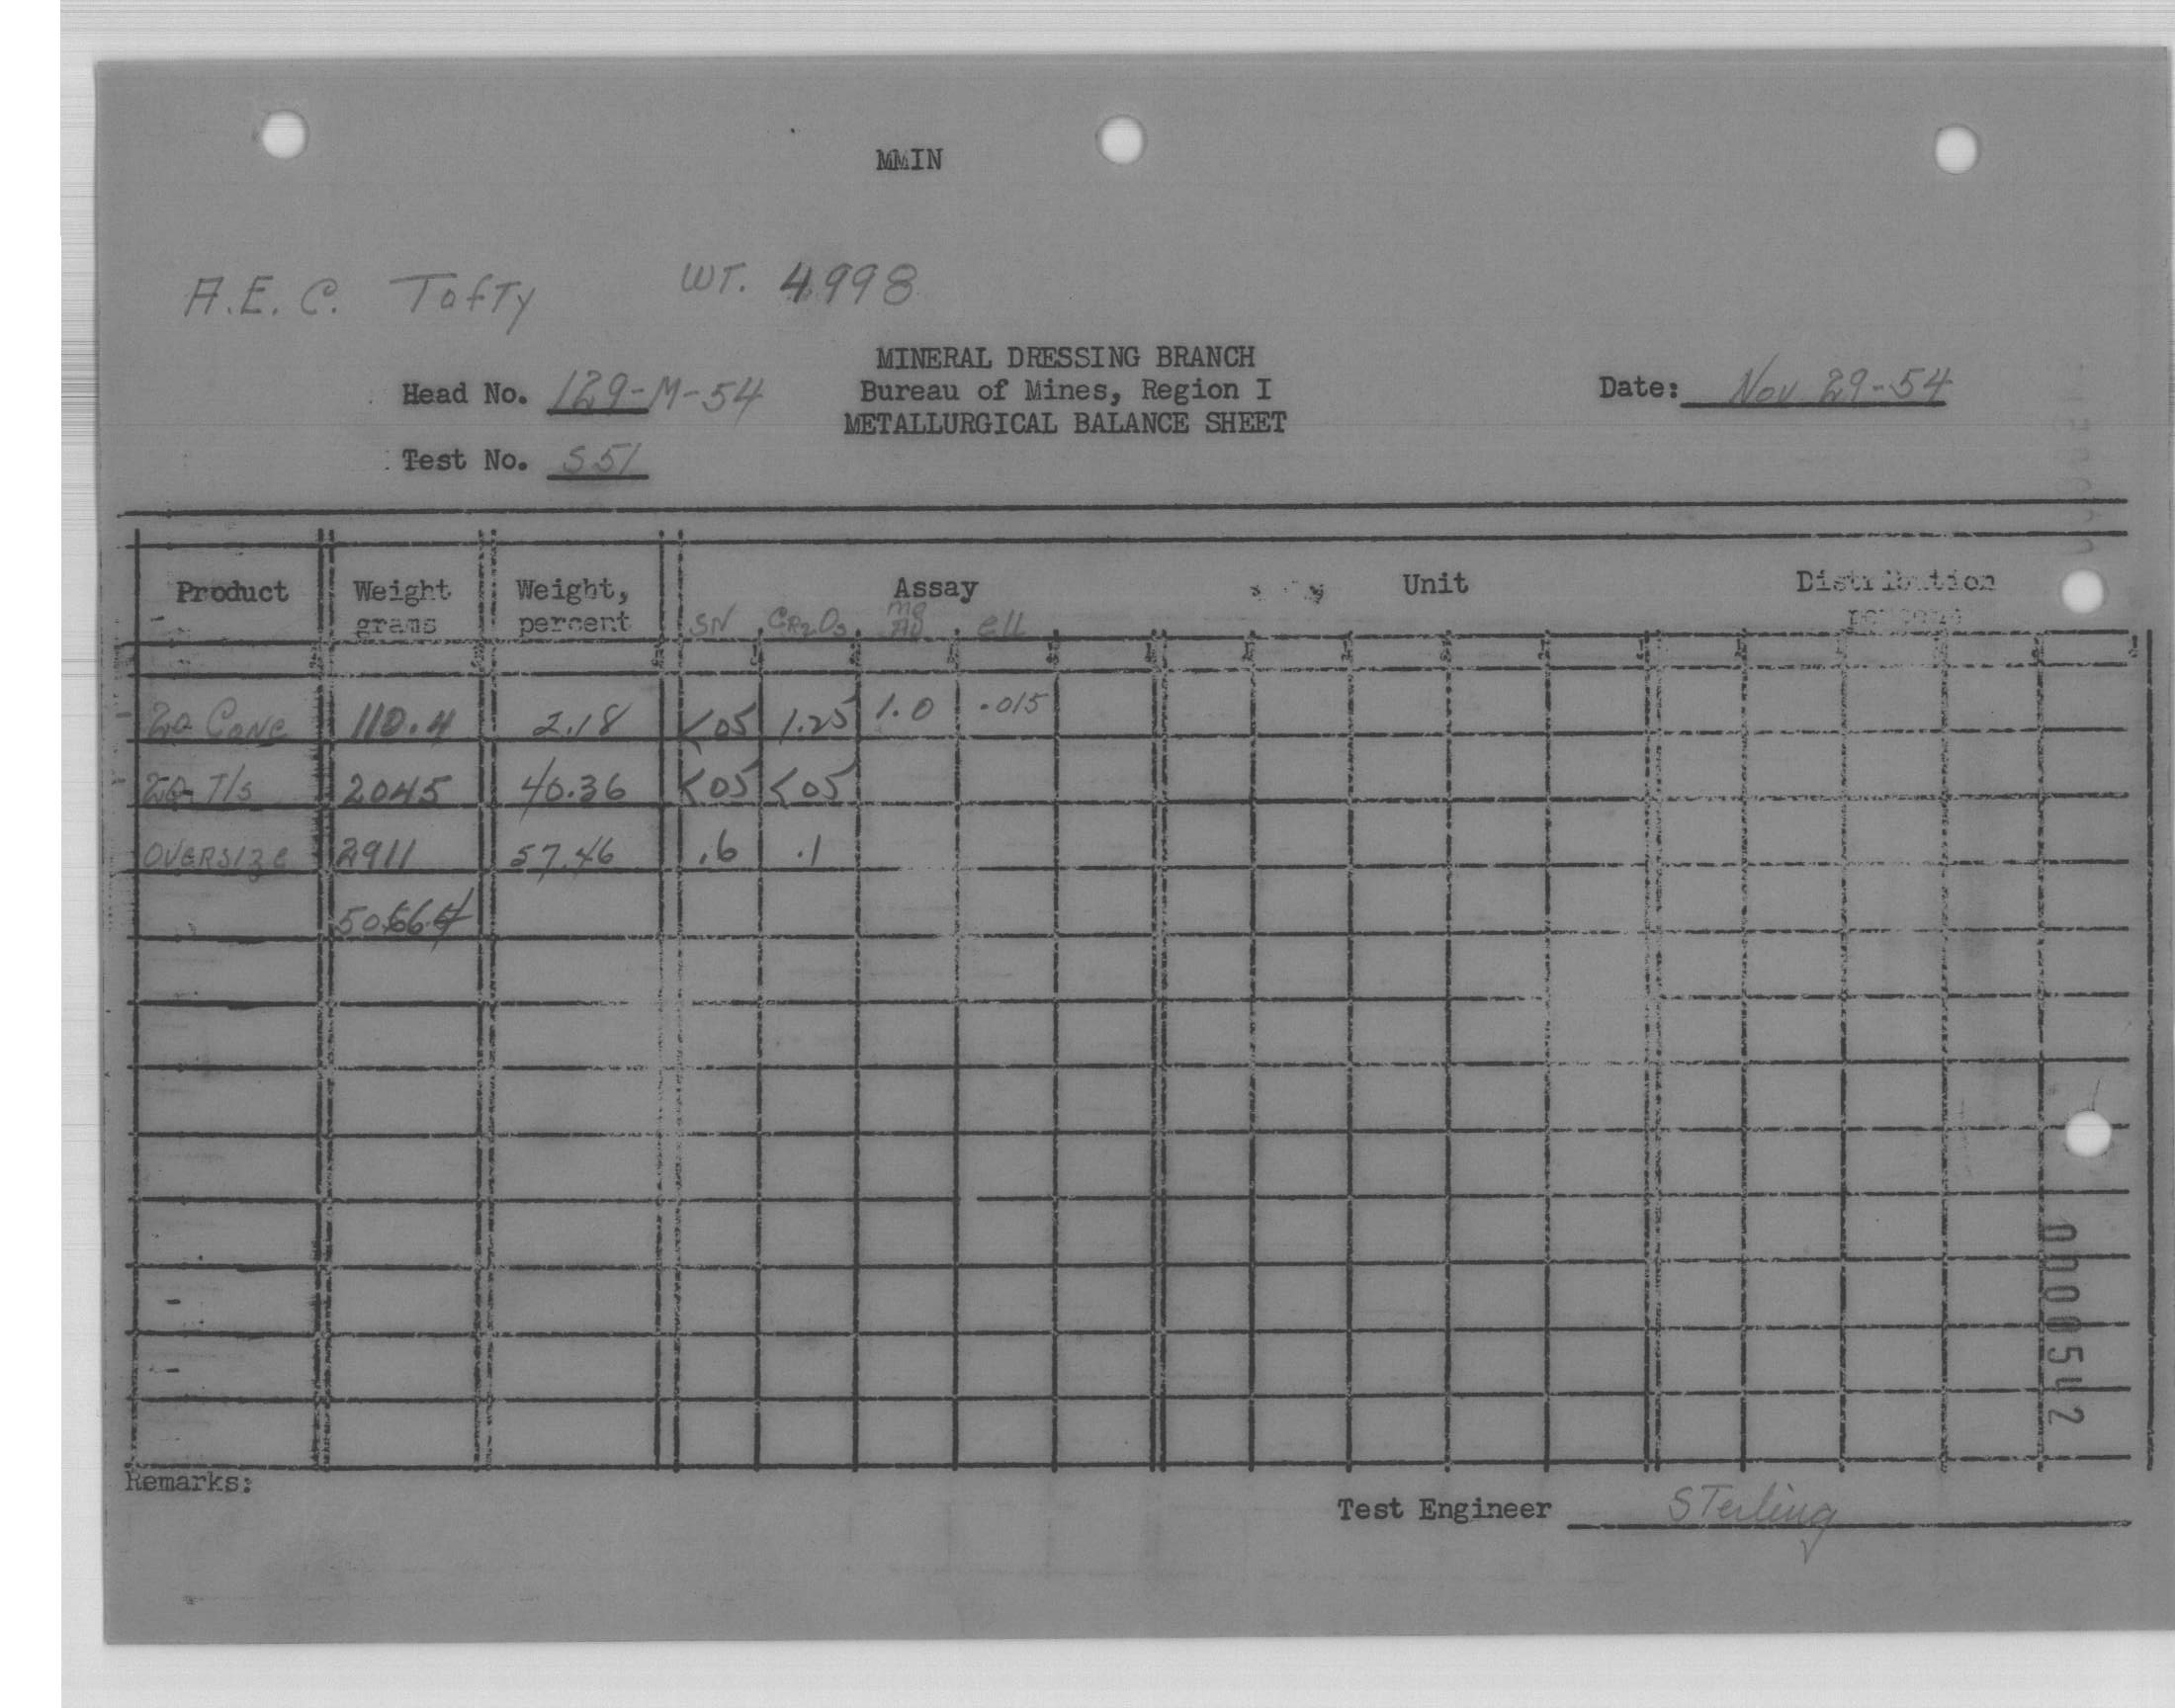 MMIN
A.E.C. Tofty WT. 4998
MINERAL DRESSING BRANCH
Head No. 129-M-54 Bureau of Mines, Region I Date: Nov 29-54
METALLURGICAL BALANCE SHEET
Test No. S51
Product Weight grams Weight, percent Assay Unit Distribution percent
SN CR2O3 mg AU eU
Conc 110.4 2.18 <05 1.25 1.0 .015
T/s 2045 40.36 <05 <05
OVERSIZE 2911 57.46 .6 .1
5066.4
Remarks:
Test Engineer STerling
000542